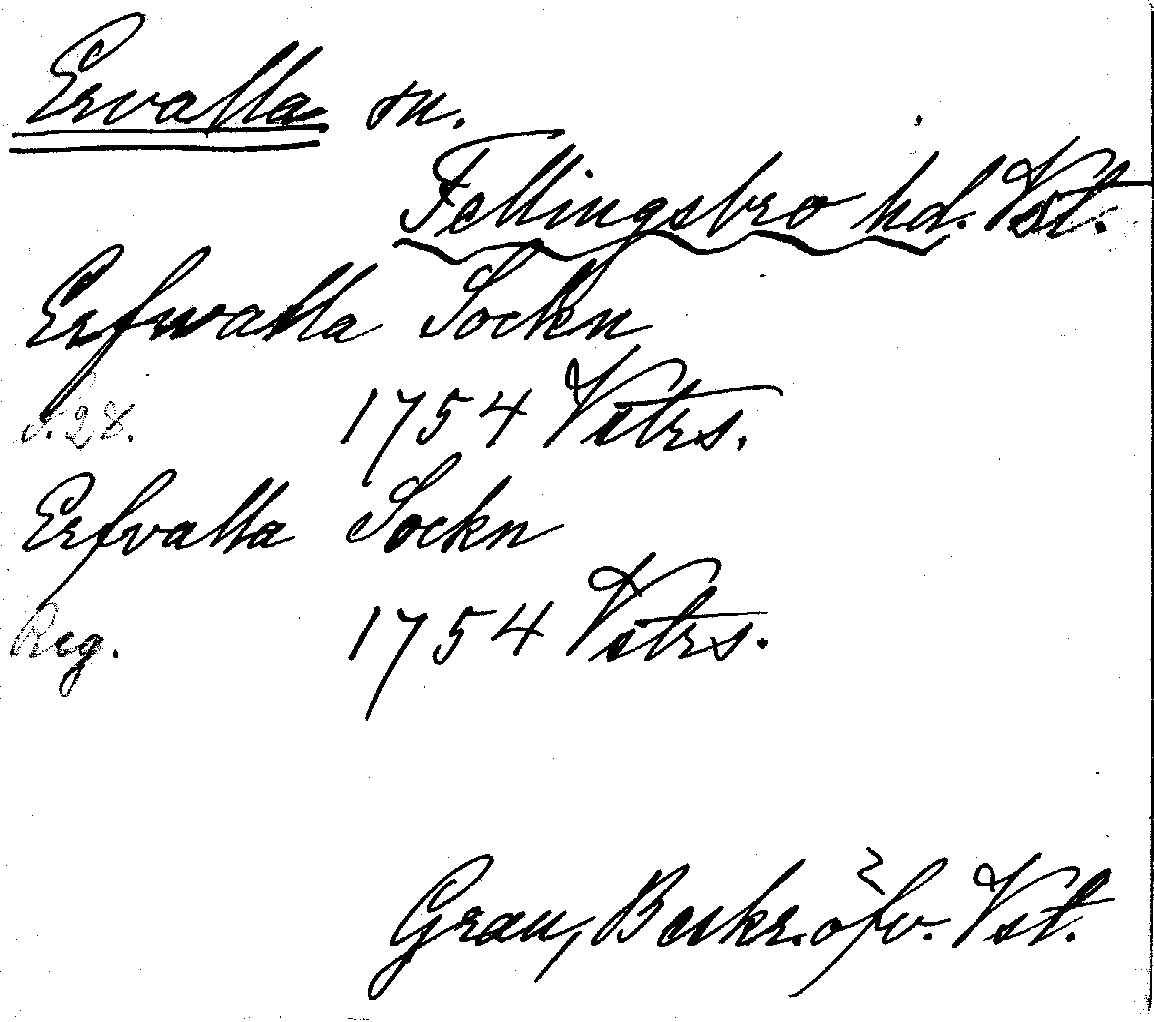 Ervalla sn.
Fellingsbro hd. Vst.
Erfwalla Sockn
s. 28. 1754 Vstrs.
Erfvalla Sockn
Reg. 1754 Vstrs.
Grau, Beskr. öfv. Vst.